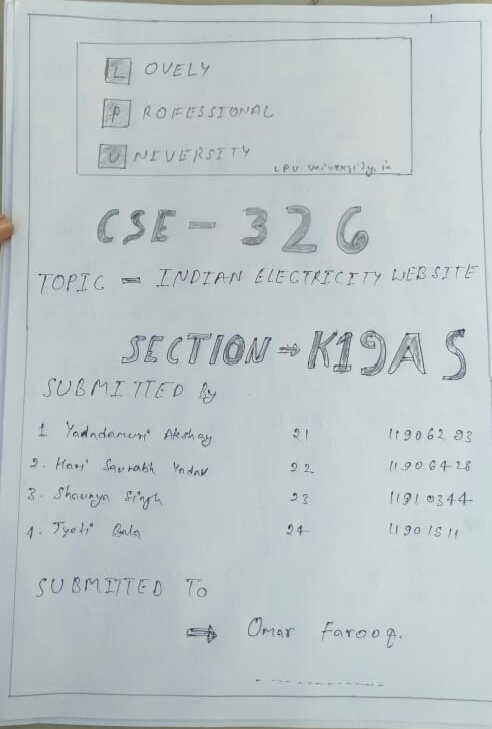 LOVELY
PROFESSIONAL
UNIVERSITY
LPU.university.in
CSE - 326
TOPIC = INDIAN ELECTRICITY WEBSITE
SECTION ⇒ K19AS
SUBMITTED By
1 Akshay 21 11906293
2. Hari Saurabh Yadav 22 11906428
3. Shaurya Singh 23 11910344
4. Jyoti Bala 24 11901511
SUBMITTED To
⇒ Omar Farooq.